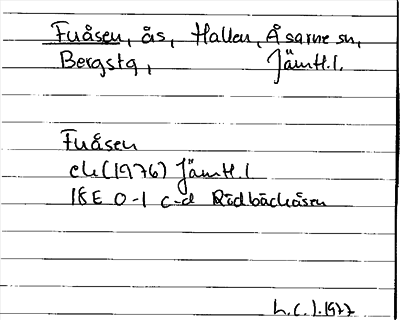 Fuåsen, ås, Hallen, Åsarne sn,
Bergstg, Jämtl.l.
Fuåsen
ek (1976) Jämtl.l
18E 0-1 c-d Rödbäckåsen
1977